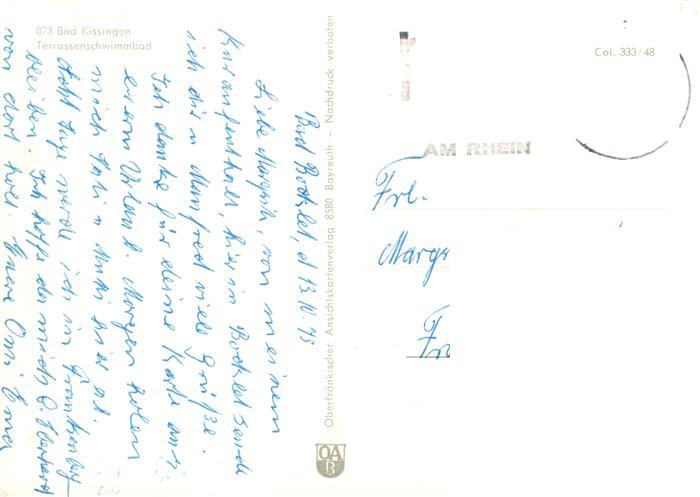 873 Bad Kissingen
Terrassenschwimmbad
Bad Bocklet, d 13.10.73
Liebe Margrit, von meinem
Kuraufenthalt, hier in Bocklet sende
ich dir u Manfred viele Grüße.
Ich danke für deine Karte aus
eurem Urlaub. Morgen holen
mich u hier ab.
Acht Tage werde ich in
bleiben. Ich hoffe
von dort Eure Omi
Oberfränkischer Ansichtskartenverlag 8580 Bayreuth – Nachdruck verboten
OA
B
Col. 333/48
AM RHEIN
Frl.
Margr
Fr